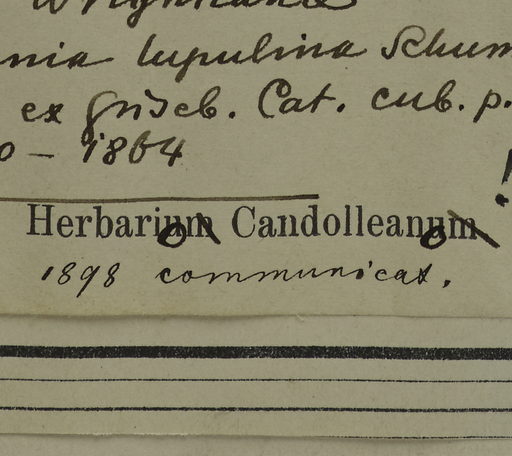 Wrightiana
nia lupulina Schum
ex Griseb. Cat. cub. p.
0 — 1864
!
Herbarium Candolleanum
o o
1898 communicat.